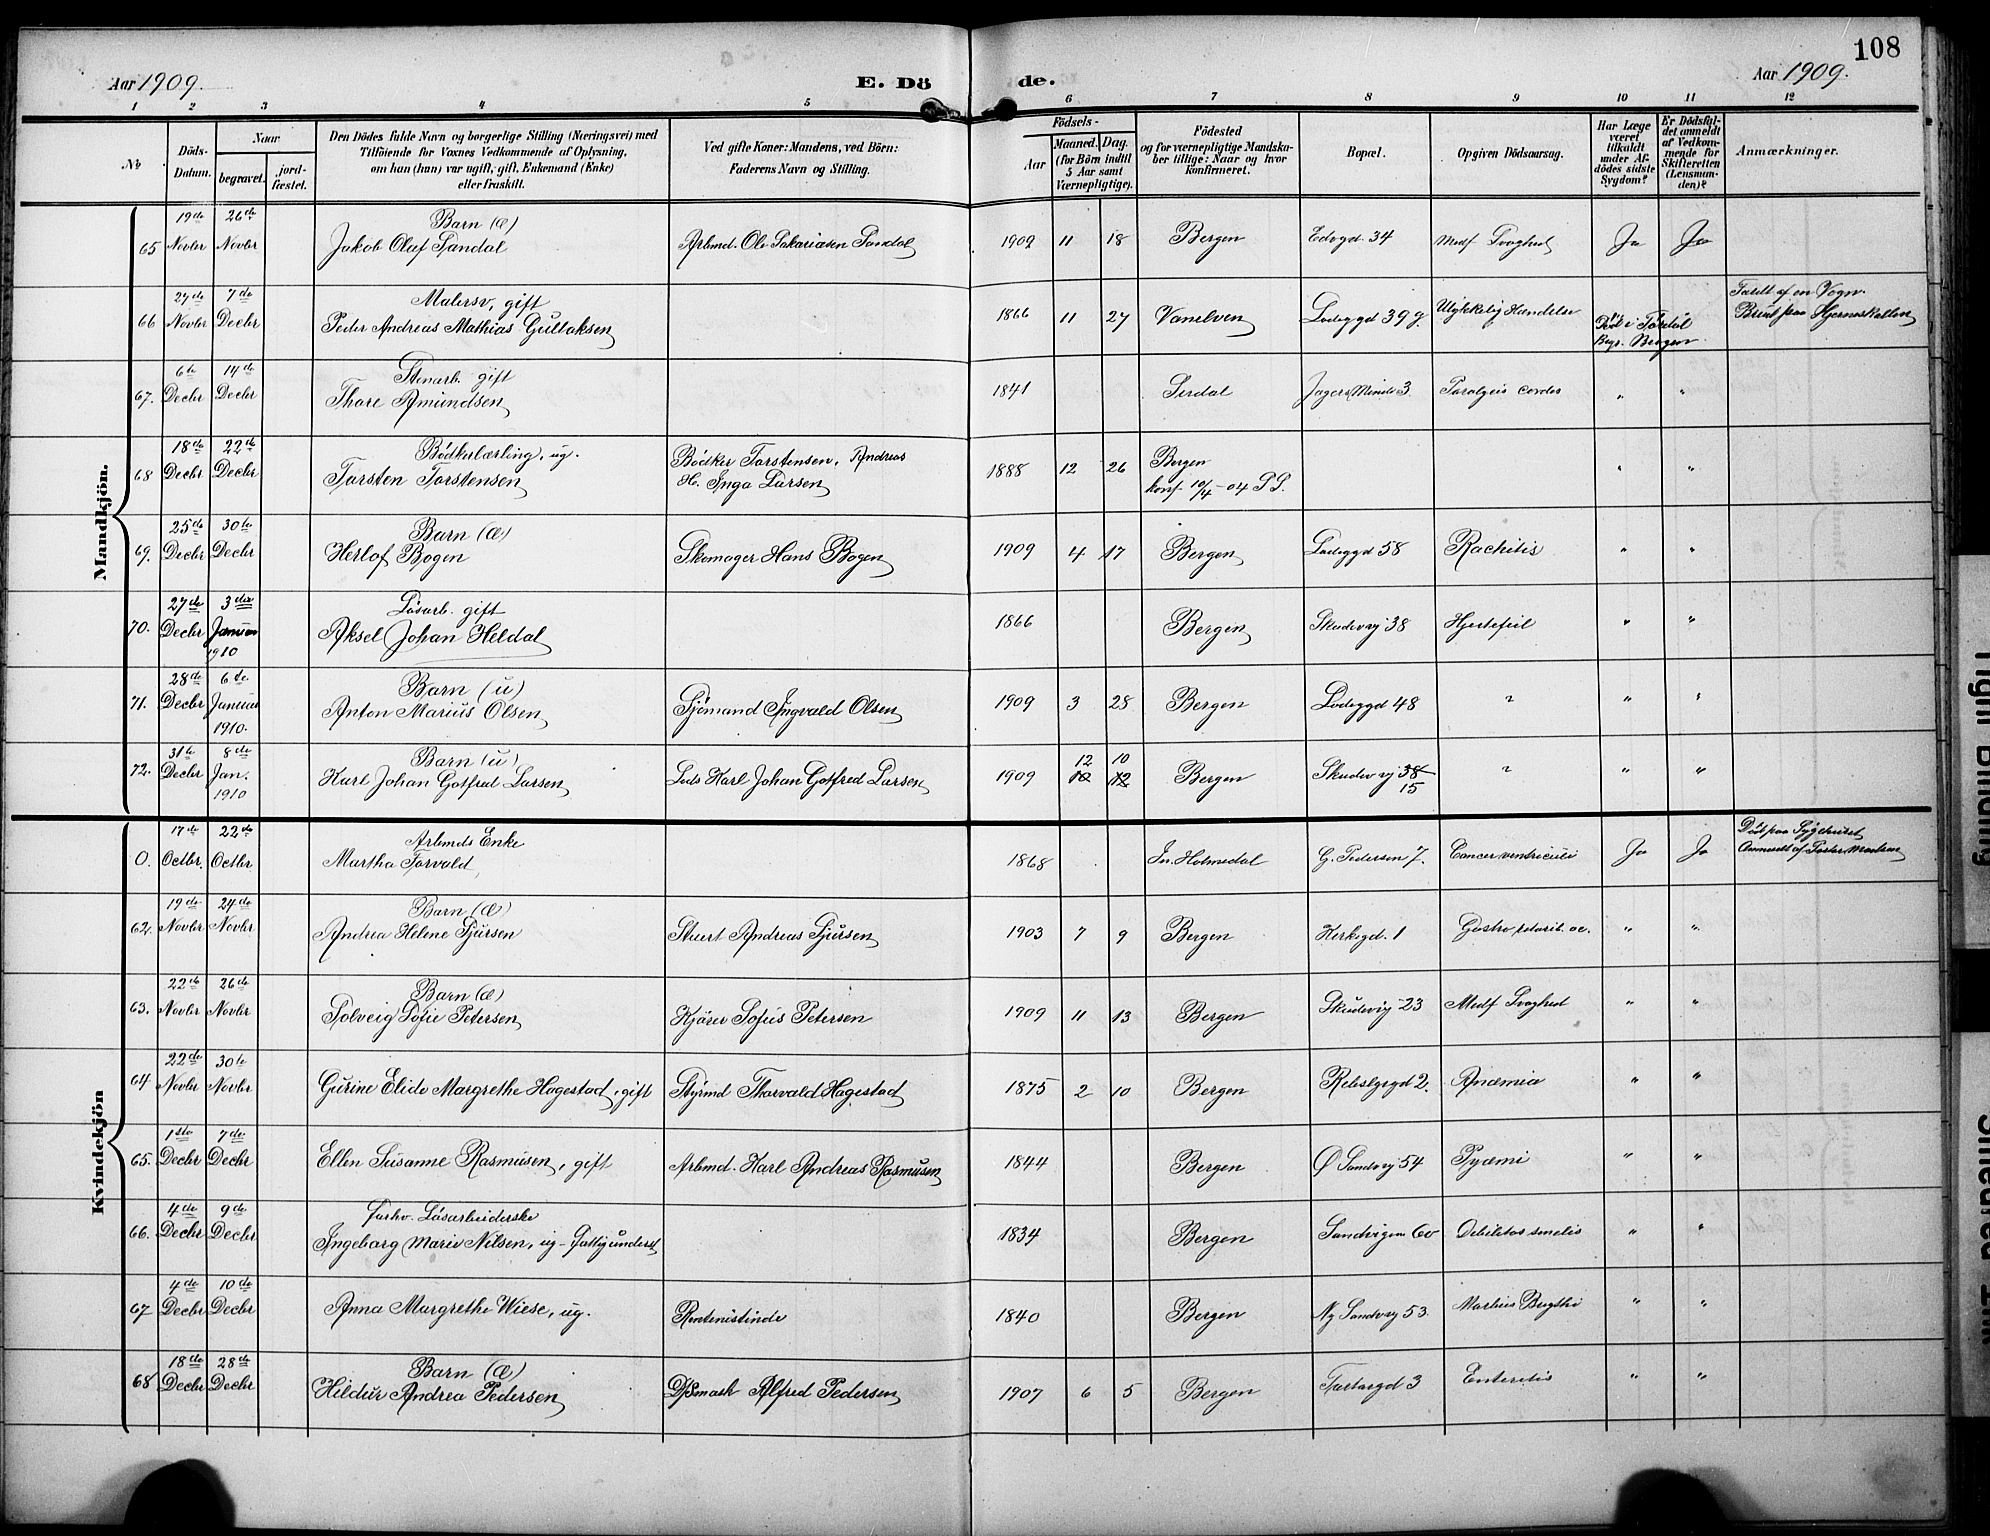 108
Aar 1909. E. Dö de. Aar 1909.
1 2 3 4 5 6 7 8 9 10 11 12
No
Döds-Datum.
Naar
begravet.
jord-fæstet.
Den Dödes fulde Navn og borgerlige Stilling (Næringsvei) med
Tilföiende for Voxnes Vedkommende af Oplysning,
om han (hun) var ugift, gift, Enkemand (Enke)
eller fraskilt.
Ved gifte Koner: Mandens, ved Börn:
Faderens Navn og Stilling.
Födsels-
Aar
Maaned. Dag.
(for Börn indtil
5 Aar samt
Værnepligtige).
Födested
og for værnepligtige Mandska-
ber tillige: Naar og hvor
konfirmeret.
Bopæl.
Opgiven Dödsaarsag.
Har Læge
været
tilkaldt
under Af-
dödes sidste
Sygdom?
Er Dödsfal-
det anmeldt
af Vedkom-
mende for
Skifteretten
(Lensman-
den)?
Anmærkninger.
Mandkjön.
19de 26de Barn (Æ)
65 Novbr Novbr Jakob Olaf Sandal Arbmd. Ole Sakariasen Sandal 1909 11 18 Bergen 34 Medf Svaghed Ja Ja
27de 7de Malersv, gift
66 Novbr Decbr Peder Andreas Mathias Gullaksen 1866 11 27 Vanelven Ladeggd 39 g Ulykkelig Hændelse Död i
Begr. Bergen
af en Vogn.
Brud paa Hjerneskallen
6te 14de Stenarb. gift
67. Decbr Decbr Thore Amundsen 1841 Sirdal Jægers Minde 3 cordis " "
18de 22de Bödkerlærling, ug.
68 Decbr Decbr Torsten Torstensen Bödker Torstensen, Andreas
H. Inga Larsen 1888 12 26 Bergen
konf 10/4 - 04 " "
25de 30te Barn (Æ)
69. Decbr Decbr Herlof Bogen Skomager Hans Bogen 1909 4 17 Bergen Ladeggd 58 Rachitis " "
27de 3die Lösarb. gift
70. Decbr Januar 1910 Aksel Johan Heldal 1866 Bergen Skudevig 38 Hjertefeil " "
28de 6te Barn (u)
71. Decbr Januar 1910. Anton Marius Olsen Sjömand Ingvald Olsen 1909 3 28 Bergen Ladeggd 48 ? " "
31te 8de Barn (u)
72. Decbr Jan. 1910 Karl Johan Gotfred Larsen Lods Karl Johan Gotfred Larsen 1909 12 10 Bergen Skudevig 38 15 ? " "
Kvindekjön
17de 22de Arbmds Enke
O. Octbr. Octbr Martha Torvald 1868 In. Holmedal G. Pedersen 7. Cancer ventriculi Ja Ja
Död paa Sygehuset
Anmeldt af Pastor
19de 24de Barn (Æ)
62. Novbr Novbr Andrea Helene Sjursen Stuert Andreas Sjursen 1903 7 9 Bergen Kirkegd. 1 Gastro " "
22de 26de Barn (Æ)
63. Novbr Novbr Solveig Sofie Petersen Kjörer Sofus Petersen 1909 11 13 Bergen Skudevig 23 Medf Svaghed " "
22de 30te
64 Novbr Novbr Gurine Elide Margrethe Hagestad, gift Styrmd Thorvald Hagestad 1875 2 10 Bergen Rebslgrgd 2. Anæmia " "
1ste 7de
65. Decbr Decbr Ellen Susanne Rasmusen, gift Arbmd. Karl Andreas Rasmusen 1844 Bergen Ø Sandvig 54 Pyæmi " "
4de 9de forhv. Lösarbeiderske
66. Decbr Decbr Ingeborg Marie Nilsen, ug - Fattigunderst 1834 Bergen Sandvigen 60 Debilitas senilis " "
4de 10de
67 Decbr Decbr Anna Margrethe Wiese, ug. Rentenistinde 1840 Bergen Ny Sandvig 53 Morbus Brigthi " "
18de 28de Barn (Æ)
68 Decbr Decbr Hildur Andrea Pedersen Alfred Pedersen 1907 6 5 Bergen 3 Enteritis " "